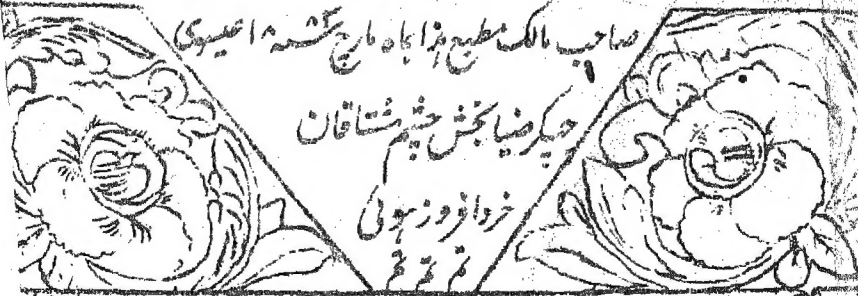 صاحب مالک مطبع ہذا بماہ مارچ ۱۸۸۳ عیسوی
چھپکر ضیا بخش چشم مشتاقان
خرد افروز ہوئی
تم تم تم